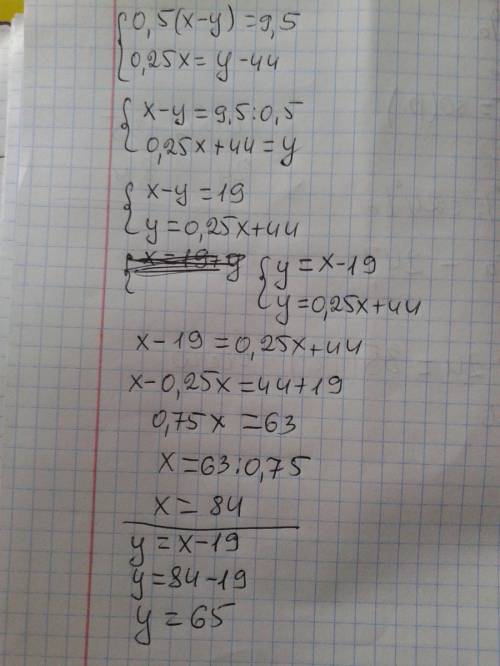 {0,5(x-y)=9,5
{0,25x=y-44
{x-y=9,5:0,5
{0,25x+44=y
{x-y=19
{y=0,25x+44
{x=19+y {y=x-19
{y=0,25x+44
x-19=0,25x+44
x-0,25x=44+19
0,75x=63
x=63:0,75
x=84
y=x-19
y=84-19
y=65